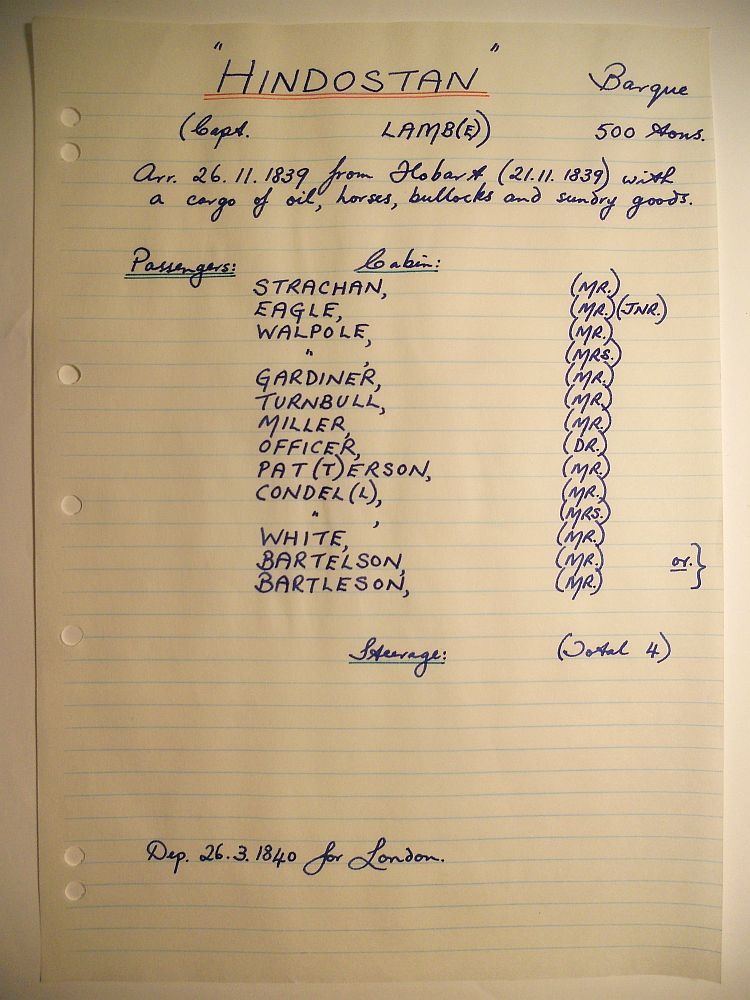 "HINDOSTAN" Barque
(Capt. LAMB(E)) 500 tons.
Arr. 26.11.1839 from Hobart (21.11.1839) with
a cargo of oil, horses, bullocks and sundry goods.
Passengers: Cabin:
STRACHAN, (MR.)
EAGLE, (MR.)(JNR.)
WALPOLE, (MR.)
" , (MRS.)
GARDINER, (MR.)
TURNBULL, (MR.)
MILLER, (MR.)
OFFICER, (DR.)
PAT(T)ERSON, (MR.)
CONDEL(L), (MR.)
" , (MRS.)
WHITE, (MR.)
BARTELSON, (MR.) or. }
BARTLESON, (MR.)
Steerage: (Total 4)
Dep. 26.3.1840 for London.